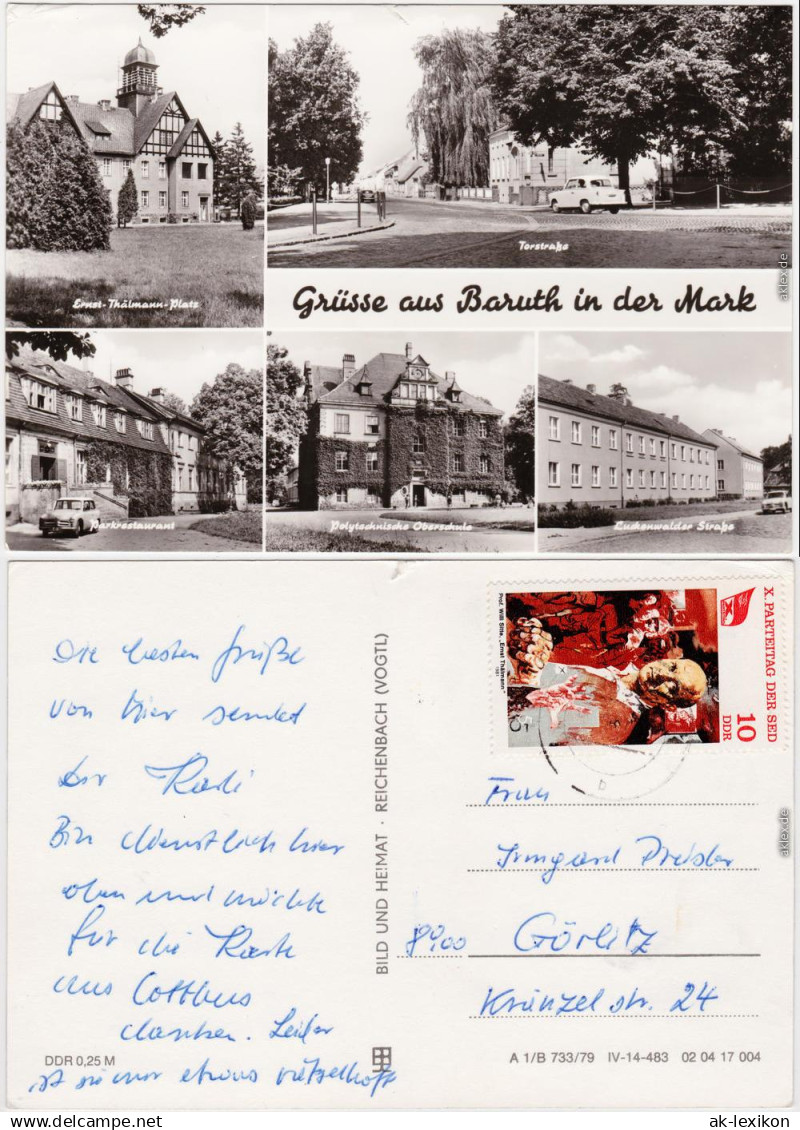 Ernst-Thälmann-Platz
Torstraße
Grüsse aus Baruth in der Mark
Parkrestaurant
Polytechnische Oberschule
Luckenwalder Straße
aklex.de
Die besten Grüße
von hier sendet
Dir
Bin dienstlich hier
oben und möchte
für die Karte
aus Cottbus
danken. Leider
ist sie mir etwas rätselhaft
DDR 0,25 M
BILD UND HEIMAT · REICHENBACH (VOGTL)
X. PARTEITAG DER SED
10
DDR
Prof. Willi Sitte, „Ernst Thälmann"
1981
Frau
Irmgard
8900 Görlitz
Kränzelstr. 24
A 1/B 733/79 IV-14-483 02 04 17 004
aklex.de
ak-lexikon.com